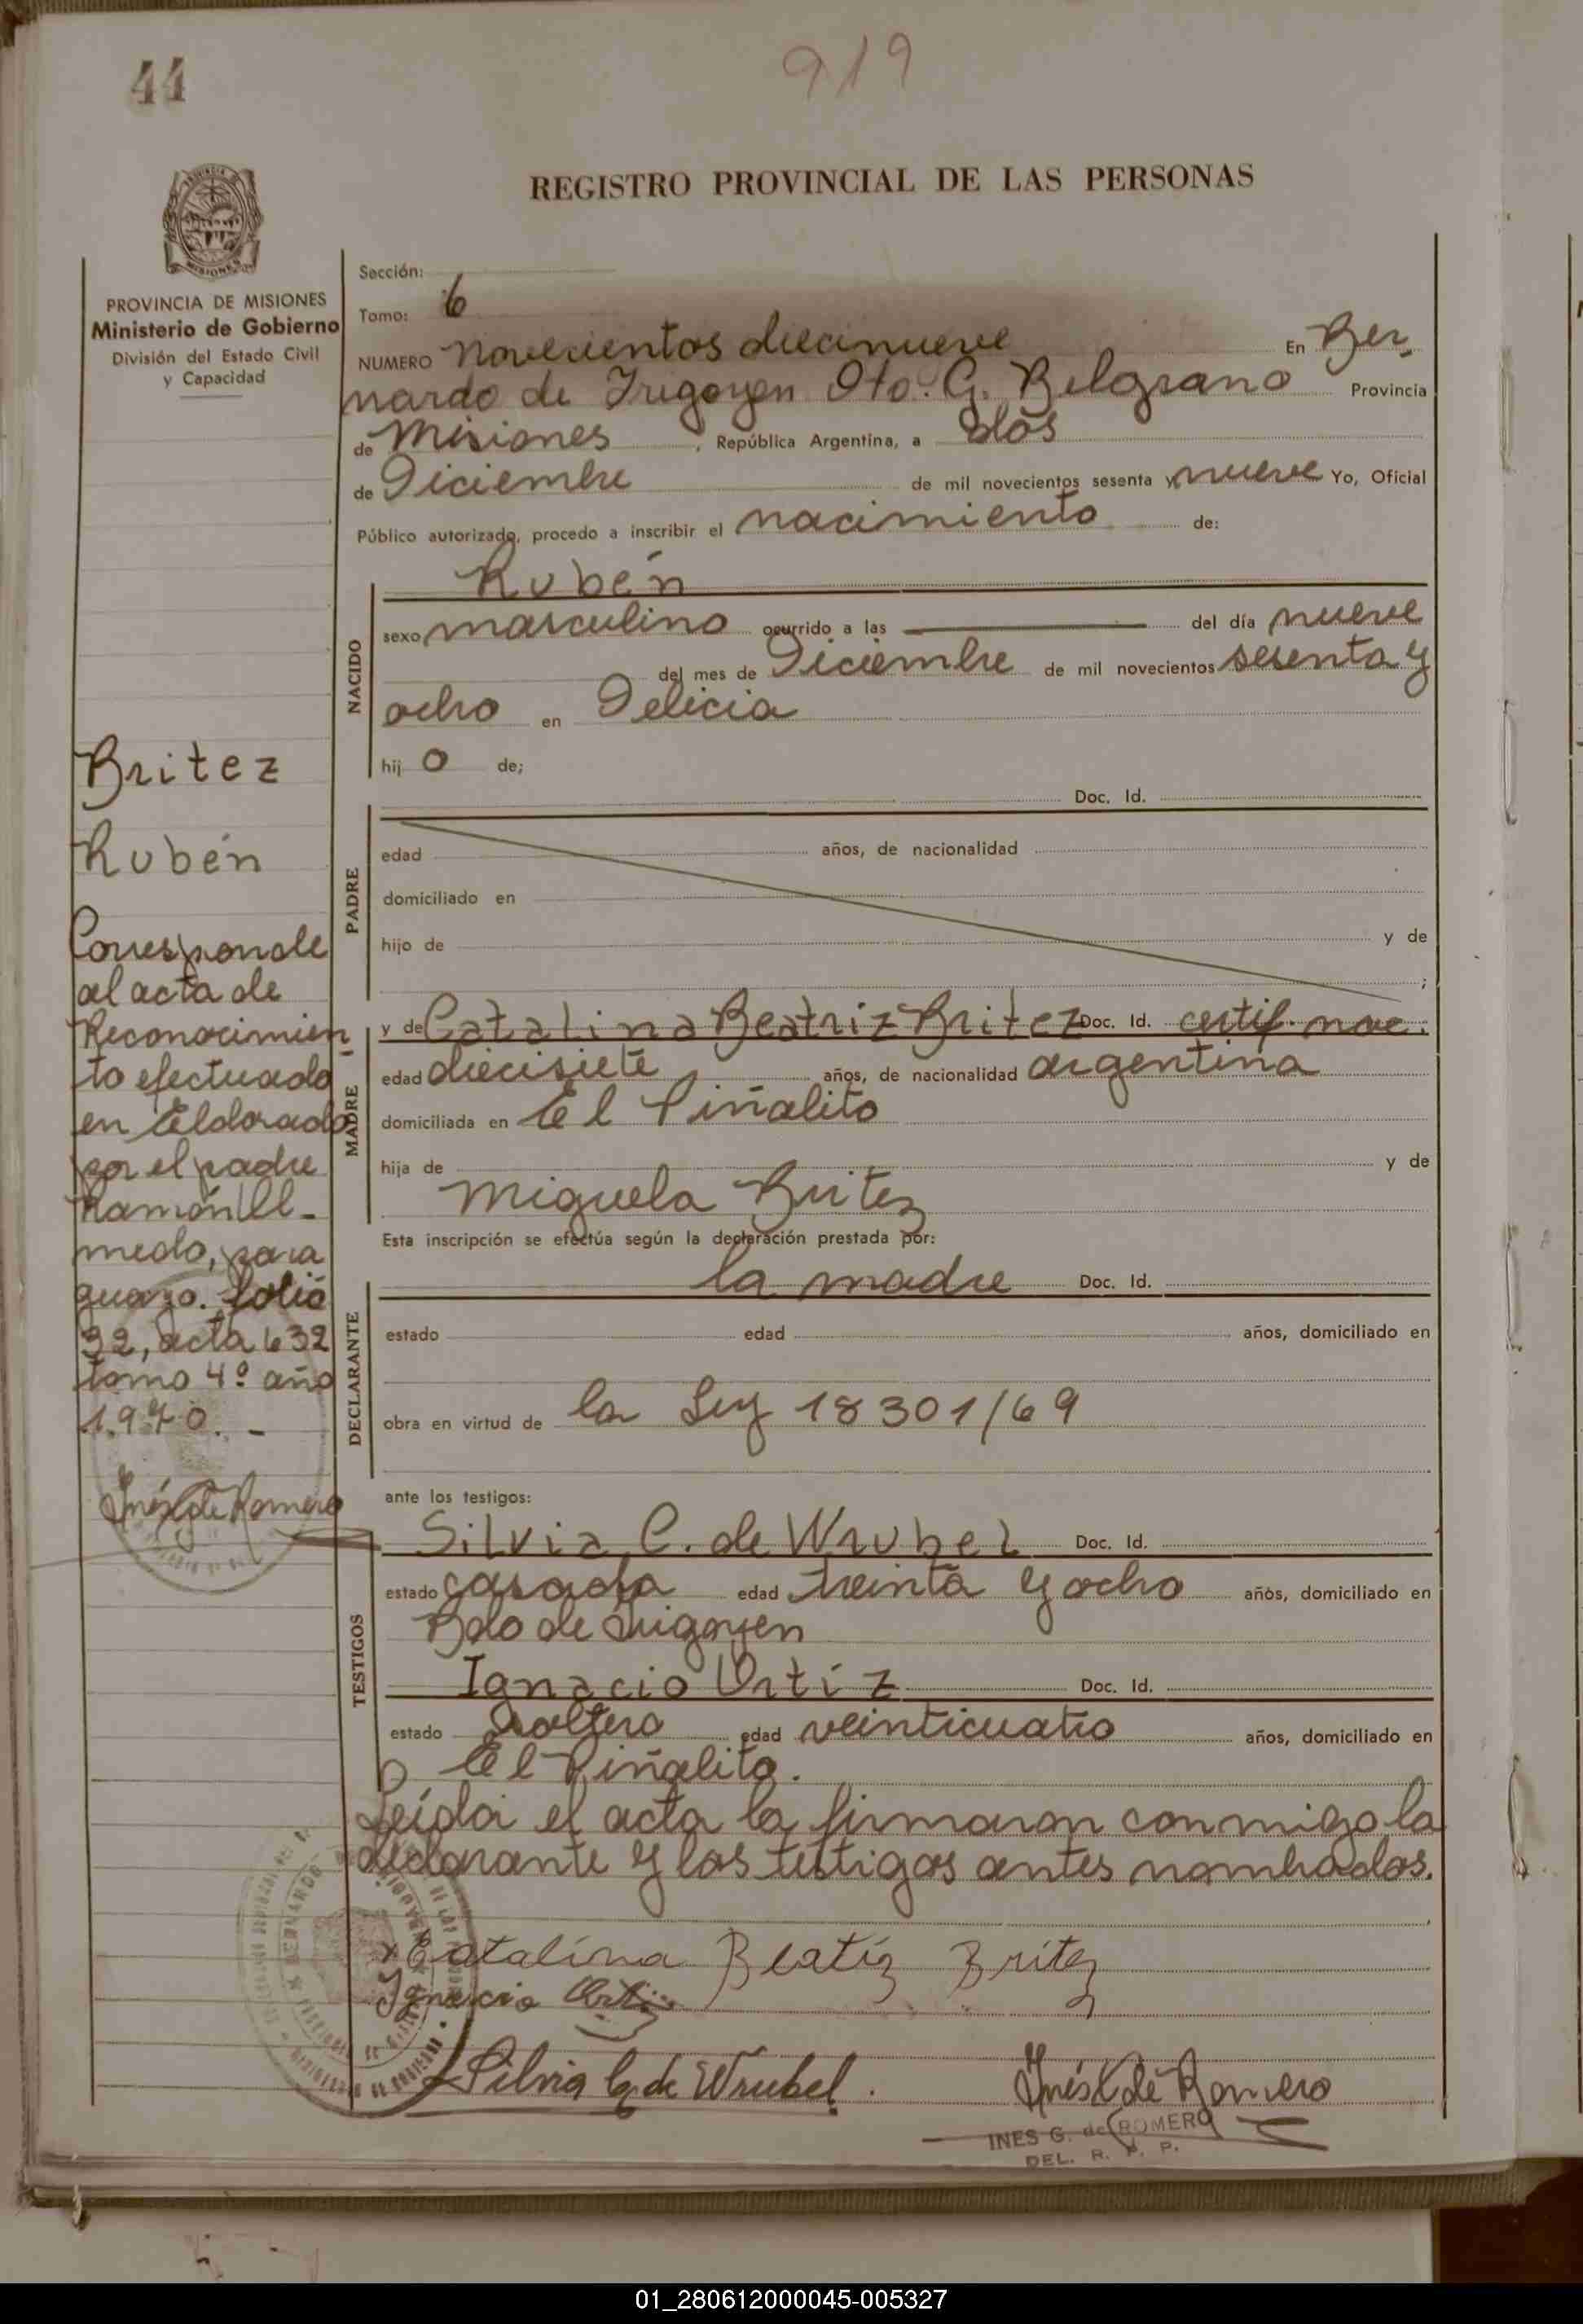 44
919
REGISTRO PROVINCIAL DE LAS PERSONAS
MISIONES
PROVINCIA DE MISIONES
Ministerio de Gobierno
División del Estado Civil
y Capacidad
Sección:
Tomo: 6
NUMERO novecientos diecinueve En Ber
nardo de Irigoyen Dto. G. Belgrano Provincia
de Misiones, República Argentina, a dos
de Diciembre de mil novecientos sesenta y nueve Yo, Oficial
Público autorizado, procedo a inscribir el nacimiento de:
NACIDO
Rubén
sexo masculino ocurrido a las del día nueve
del mes de Diciembre de mil novecientos sesenta y
ocho en Delicia
hij o de;
PADRE
Doc. Id.
edad años, de nacionalidad
domiciliado en
hijo de y de
;
MADRE
y de Catalina Beatriz Britez Doc. Id. certif. nac.
edad diecisiete años, de nacionalidad argentina
domiciliada en El Piñalito
hija de y de
Miguela Britez
Esta inscripción se efectúa según la declaración prestada por:
DECLARANTE
la madre Doc. Id.
estado edad años, domiciliado en
obra en virtud de la Ley 18301/69
ante los testigos:
TESTIGOS
Silvia C. de Wrubel Doc. Id.
estado casada edad treinta y ocho años, domiciliado en
Bdo de Irigoyen
Ignacio Ortíz Doc. Id.
estado soltero edad veinticuatro años, domiciliado en
El Piñalito.
Leída el acta la firmaron conmigo la
declarante y los testigos antes nombrados.
x Catalina Beatíz Britez
Ignacio Ortiz
Silvia C. de Wrubel.
Inés G. de Romero
INES G. de ROMERO
DEL. R. P. P.
Britez
Rubén
Corresponde
al acta de
Reconocimien
to efectuado
en Eldorado
por el padre
Ramón
medo, para
guayo. folio
32, acta 632
tomo 4º año
1.970.-
Inés G. de Romero
01_280612000045-005327